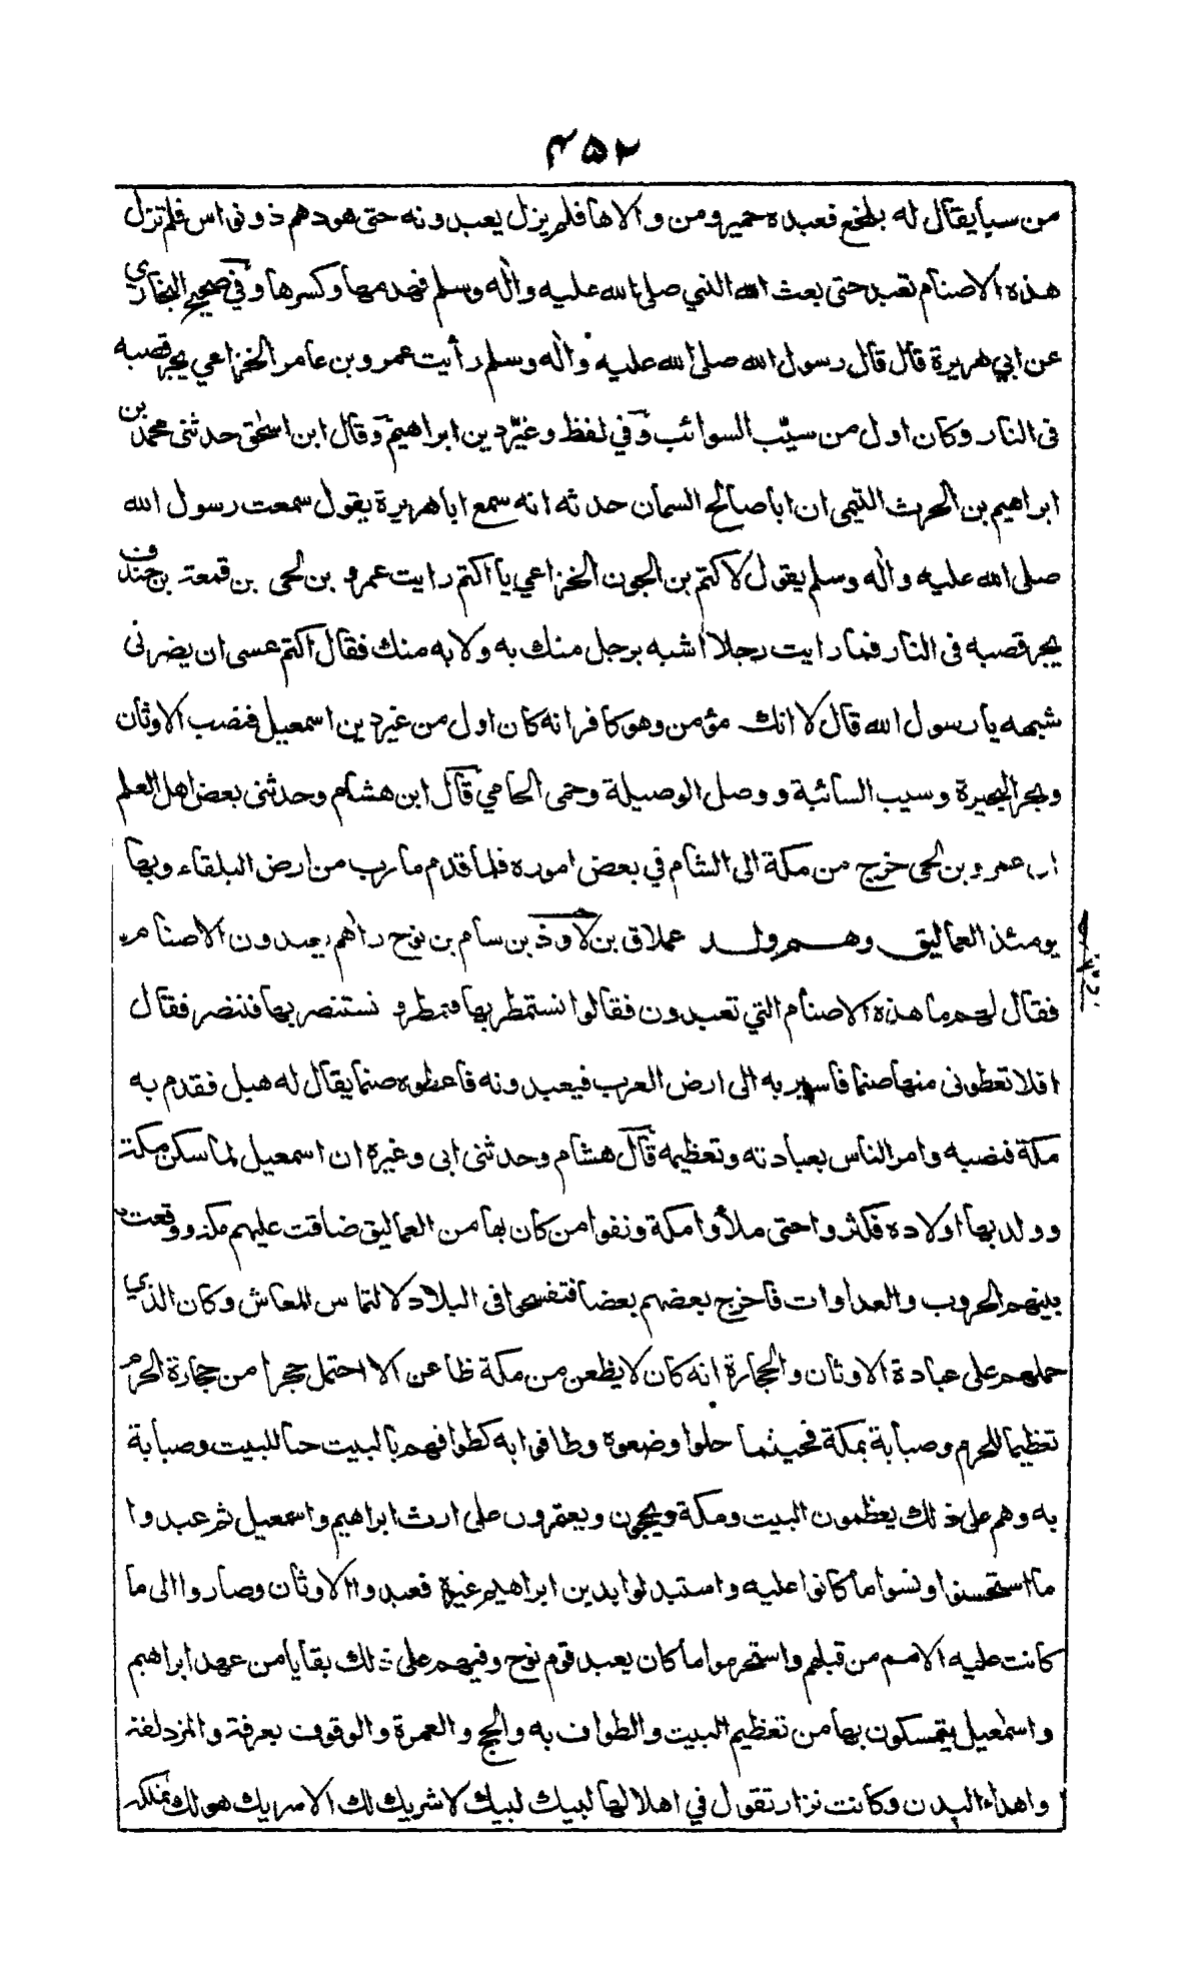 ۴۵۲
من سبأ يقال له بلخع فعبده حمير ومن والاها فلم يزل يعبدونه حتى هودهم ذو نواس فلم تزل
هذه الاصنام تعبد حتى بعث الله النبي صلى الله عليه واله وسلم فهدمها وكسرها وفي صحيح البخاري
عن ابي هريرة قال قال رسول الله صلى الله عليه واله وسلم رأيت عمرو بن عامر الخزاعي يجر قصبه
فى النار وكان اول من سيّب السوائب وفي لفظ وغيّر دين ابراهيم وقال ابن اسحٰق حدثنى محمد بن
ابراهيم بن الحرث التيمى ان ابا صالح السمان حدثه انه سمع ابا هريرة يقول سمعت رسول الله
صلى الله عليه واله وسلم يقول لاكتم بن الجون الخزاعي يا اكتم رايت عمرو بن لحى بن قمعة بن خندف
يجر قصبه فى النار فما رايت رجلا اشبه برجل منك به ولا به منك فقال اكتم عسى ان يضرنى
شبهه يا رسول الله قال لا انك مؤمن وهو كافر انه كان اول من غير دين اسمعيل فنصب الاوثان
وبحر البحيرة وسيب السائبة ووصل الوصيلة وحمى الحامي قال ابن هشام وحدثنى بعض اهل العلم
ان عمرو بن لحى خرج من مكة الى الشام في بعض اموره فلما قدم مارب من ارض البلقاء وبها
يومئذ العماليق وهم ولد عملاق بن لاوذ بن سام بن نوح راهم يعبدون الاصنام
فقال لهم ما هذه الاصنام التي تعبدون فقالوا نستمطر بها فنمطر و نستنصر بها فننصر فقال
افلا تعطونى منها صنما فاسير به الى ارض العرب فيعبدونه فاعطوه صنما يقال له هبل فقدم به
مكة فنصبه وامر الناس بعبادته وتعظيمه قال هشام وحدثنى ابى وغيره ان اسمعيل لما سكن مكة
وولد بها اولاده فكثروا حتى ملأوا مكة ونفوا من كان بها من العماليق ضاقت عليهم مكة ووقعت
بينهم الحروب والعداوات فاخرج بعضهم بعضا فتفسحوا فى البلاد لالتماس المعاش وكان الذي
حملهم على عبادة الاوثان والحجارة انه كان لا يظعن من مكة ظاعن الا احتمل حجرا من حجارة الحرم
تعظيما للحرم وصبابة بمكة فحيثما حلوا وضعوه وطافوا به كطوافهم بالبيت حبا للبيت وصبابة
به وهم على ذلك يعظمون البيت ومكة ويحجون ويعتمرون على ارث ابراهيم واسمعيل ثم عبدوا
ما استحسنوا ونسوا ما كانوا عليه واستبدلوا بدين ابراهيم غيره فعبدوا الاوثان وصاروا الى ما
كانت عليه الامم من قبلهم واستخرجوا ما كان يعبد قوم نوح وفيهم على ذلك بقايا من عهد ابراهيم
واسمٰعيل يتمسكون بها من تعظيم البيت والطواف به والحج والعمرة والوقوف بعرفة والمزدلفة
واهداء البدن وكانت نزار تقول في اهلالها لبيك لبيك لا شريك لك الا شريك هو لك تملكه